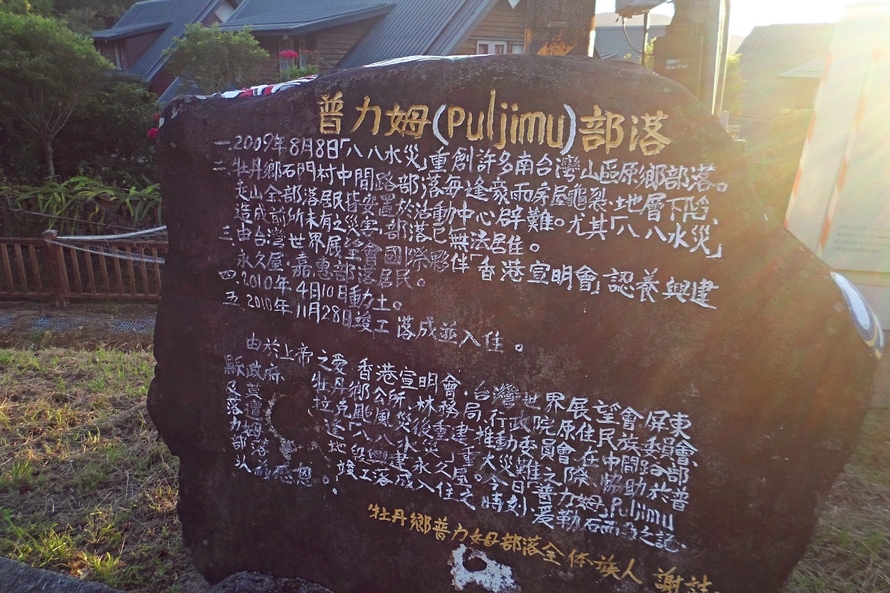 普力姆(puljimu)部落
一.2009年8月8日「八八水災」重創許多南台灣山區原鄉部落。
二.牡丹鄉石門村中間路部落每逢豪雨房屋龜裂.地層下陷、
走山全部落厭 安置於活動中心辟難。尤其「八八水災」
造成前所未有之災害.部落已無法居住。
三.由台灣世界展望會國際夥伴「香港宣明會」認養興建
永久屋.嘉惠部落居民。
四.2010年4月10日動土。
五.2010年11月28日竣工落成並入住。
由於上帝之愛.香港宣明會.台灣世界展望會.屏東
縣政府.牡丹鄉公所.林務局.行政院原住民族委員會.
及莫拉克颱風災後重建推動委員會.在中間路部
落遭逢「八八水災」重大災難之際.協助於普
力姆 地段興建永久屋。今日「普力姆」puljimu
部落 竣工落成入住之時刻.爰勒石而為之記.
以 感恩。
牡丹鄉普力姆部落全體族人 謝誌